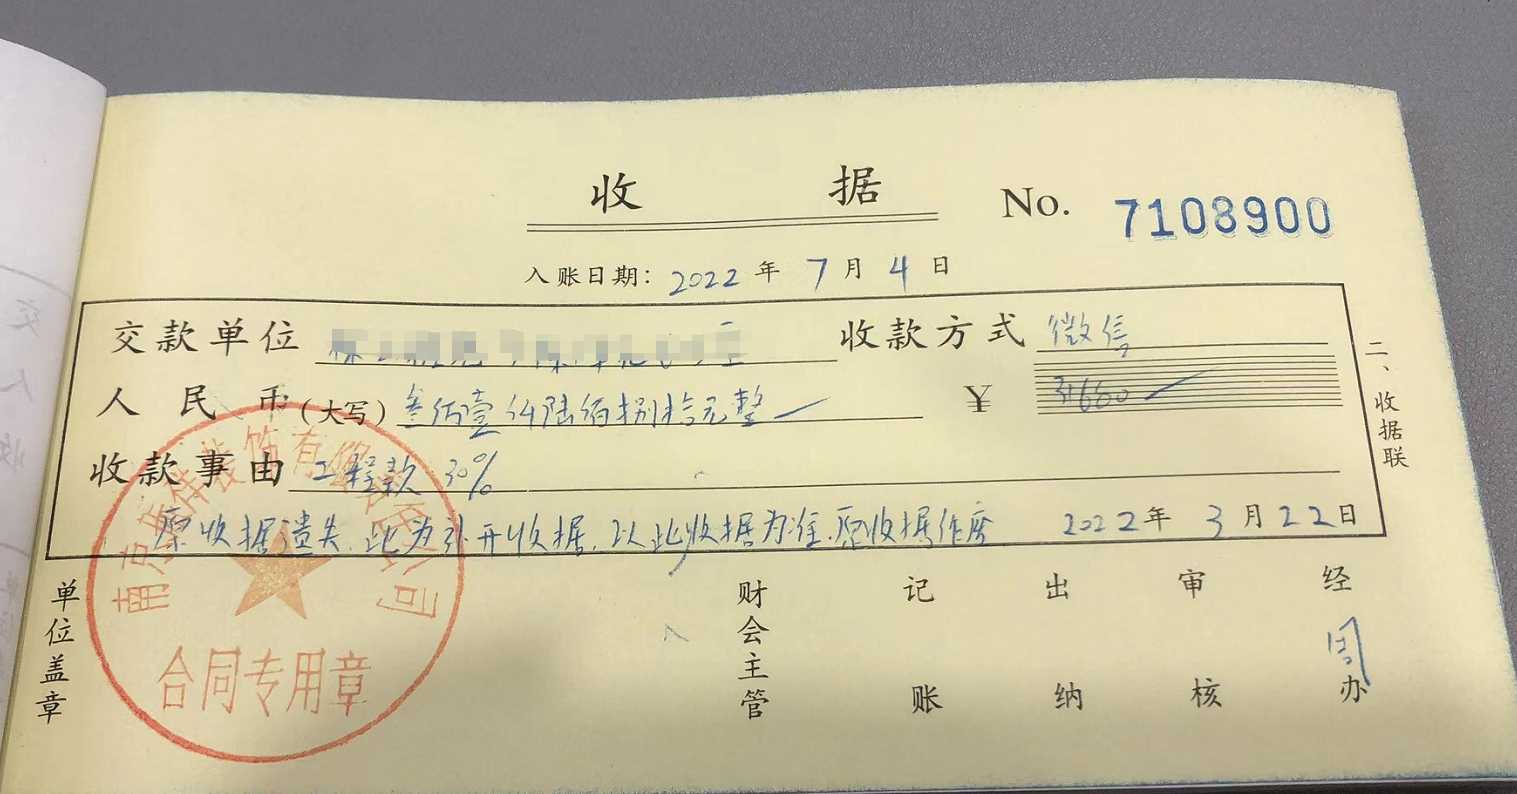 收据 No. 7108900
入账日期：2022年7月4日
交款单位 收款方式 微信
人民币（大写）叁佰壹仟陆佰捌拾元整 ¥ 31680
收款事由 工程款30%
原收据遗失，此为补开收据，以此收据为准，原收据作废 2022年3月22日
二、收据联
单位盖章 财会主管 记账 出纳 审核 经办 周
装饰有限公司
合同专用章